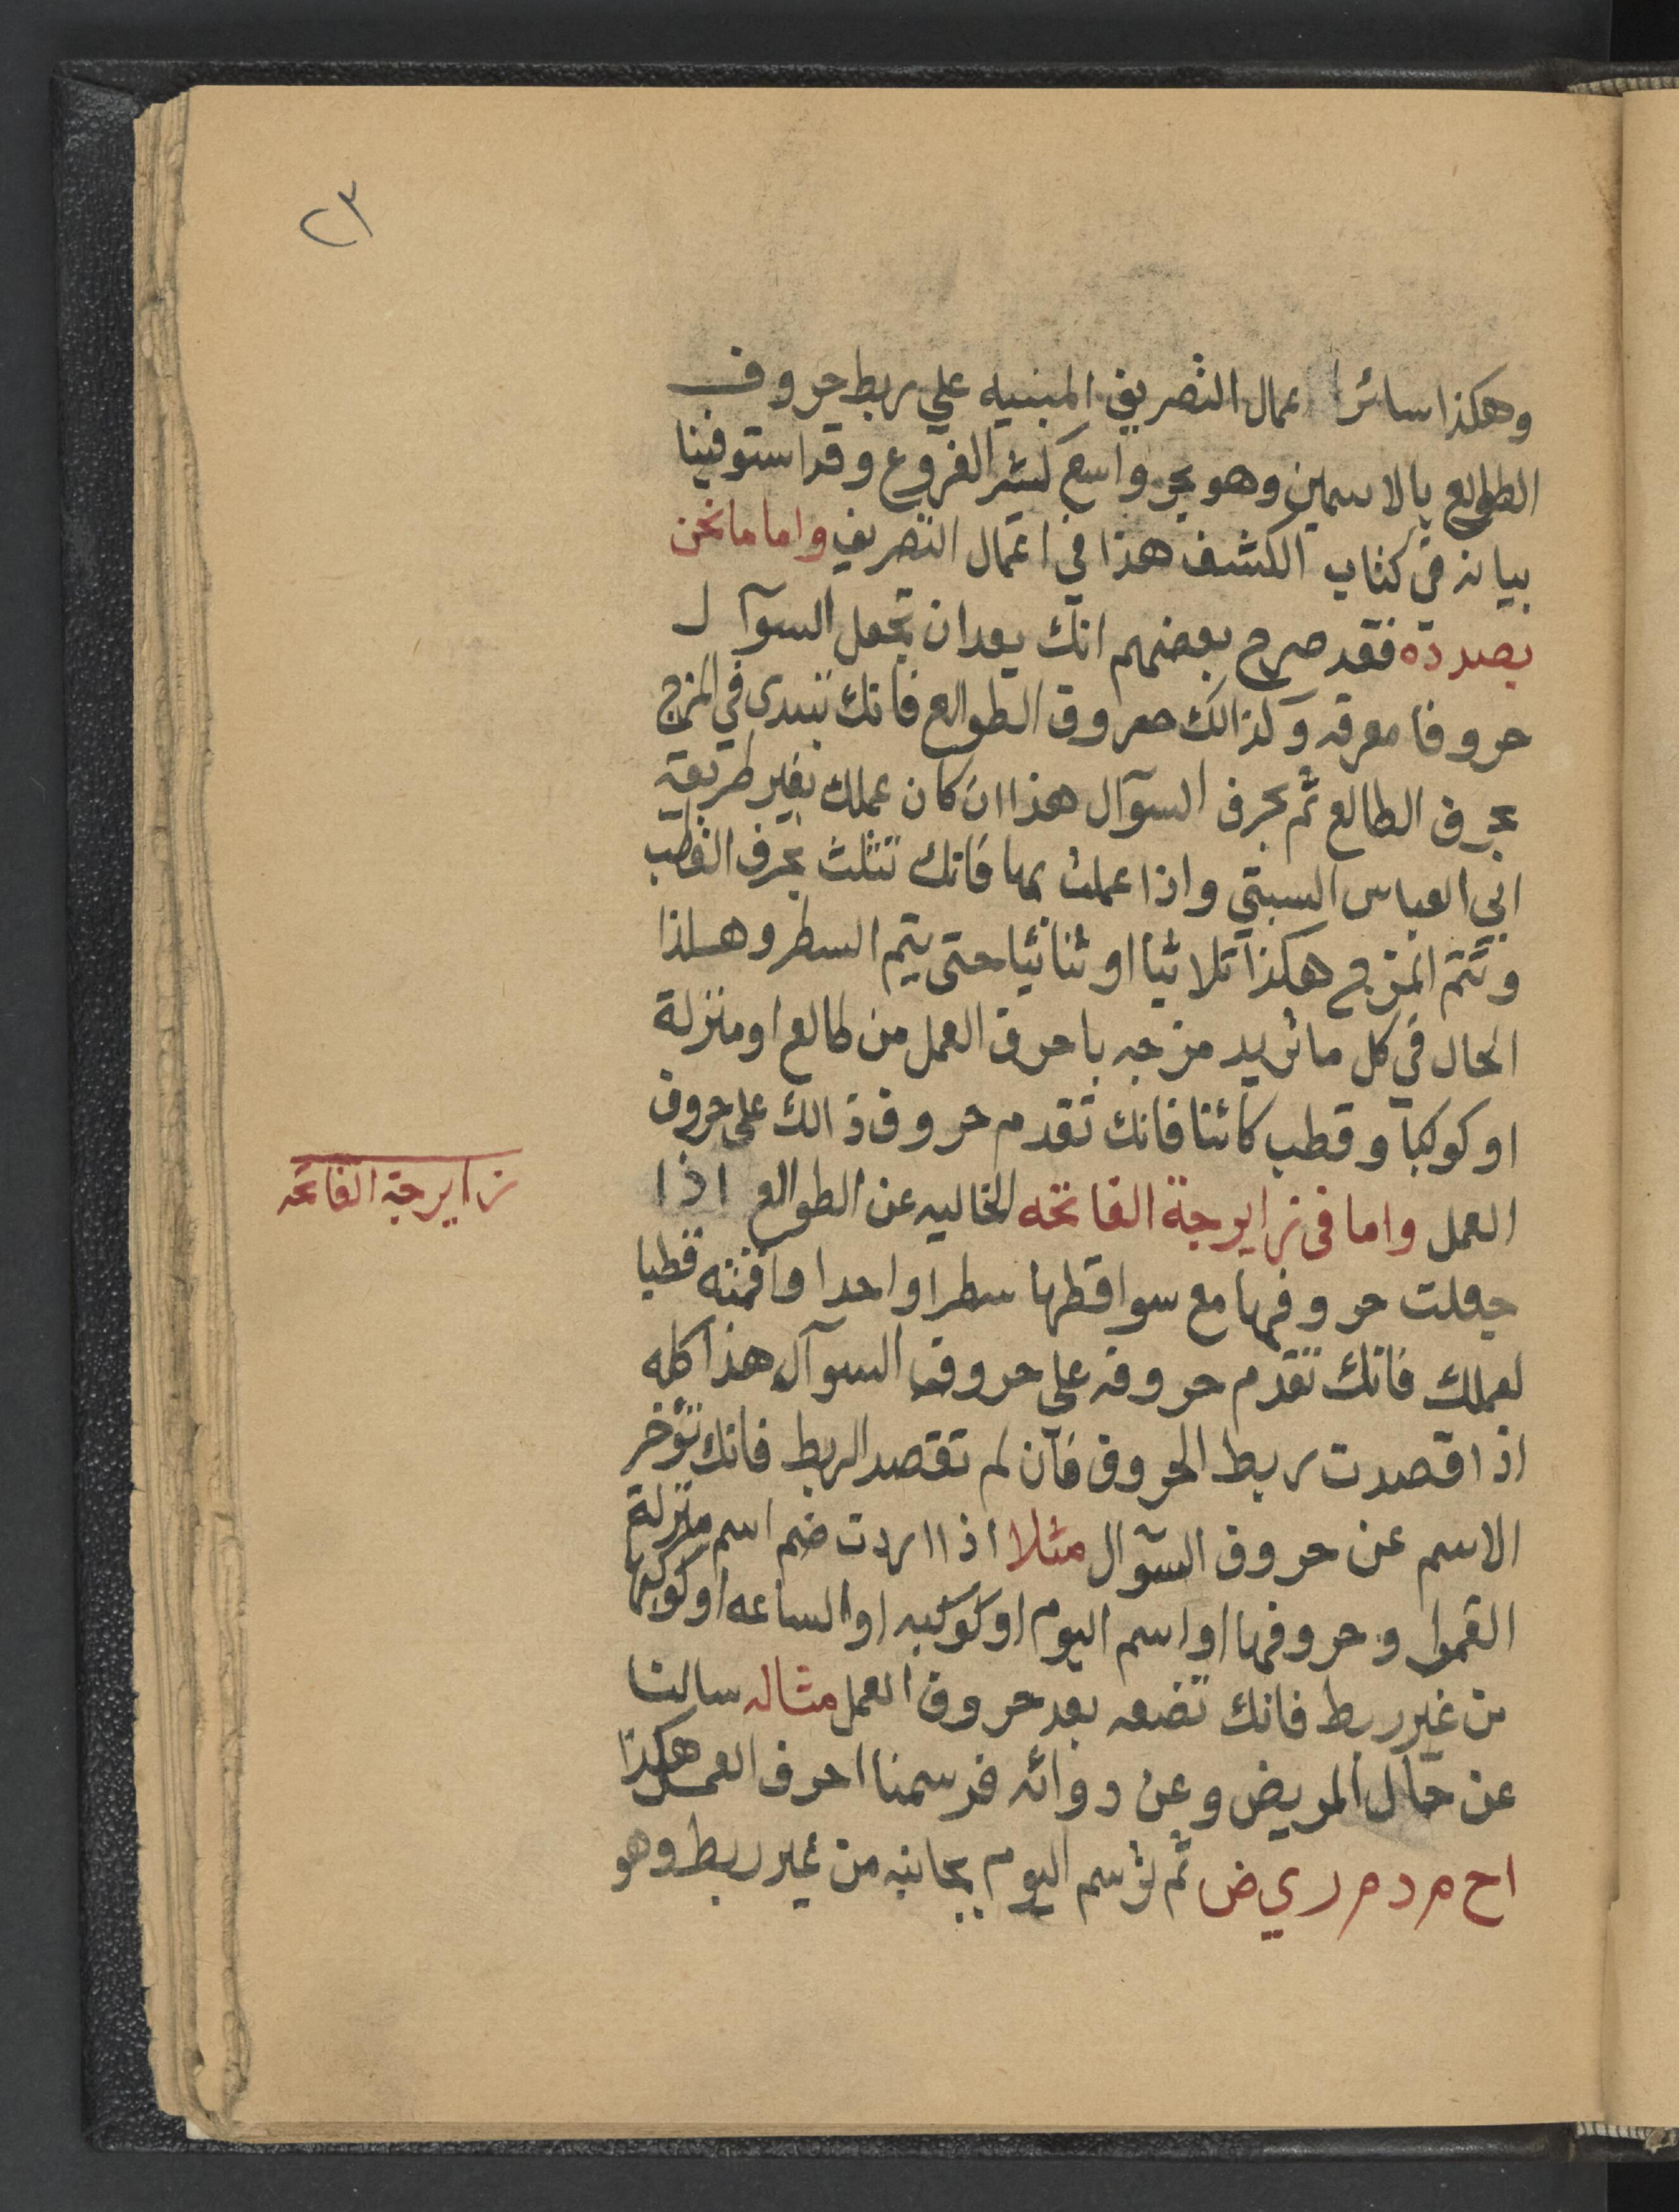 ٢٣
وهكذا سائر اعمال التصريف المبنيه علي ربط حروف
الطوالع بالاسمين وهو بحر واسع كثير الفروع وقد استوفينا
بيانه في كتاب الكشف هذا في اعمال التصريف واما ما نحن
بصدده فقد صرح بعضهم انك بعد ان تجعل السوآل
حروفا مفرقه وكذالك حروف الطوالع فانك تبتدى في المزج
بحرف الطالع ثم بحرف السوآل هذا ان كان عملك بغير طريقة
ابي العباس السبتي واذا عملت بها فانك تثلث بحرف القطب
وتتم المزج هكذا ثلاثيا او ثنائيا حتى يتم السطر وهكذا
الحال في كل ما تريد مزجه باحرف العمل من طالع او منزلة
او كوكبا وقطب كائنا فانك تقدم حروف ذالك على حروف
العمل واما في زايرجة الفاتحه الخاليه عن الطوالع اذا
زايرجة الفاتحه
جعلت حروفها مع سواقطها سطرا واحدا واقمته قطبا
لعملك فانك تقدم حروفه على حروف السوآل هذا كله
اذا قصدت ربط الحروف فان لم تقصد الربط فانك تؤخر
الاسم عن حروف السوآل مثلا اذا اردت ضم اسم منزلة
القمر او حروفها او اسم اليوم او كوكبه او الساعه او كوكبها
من غير ربط فانك تضعه بعد حروف العمل مثاله سالنا
عن حال المريض وعن دوائه فرسمنا احرف العمل هكذا
ا ح م د م ر ي ض ثم نرسم اليوم بجانبه من غير ربط وهو